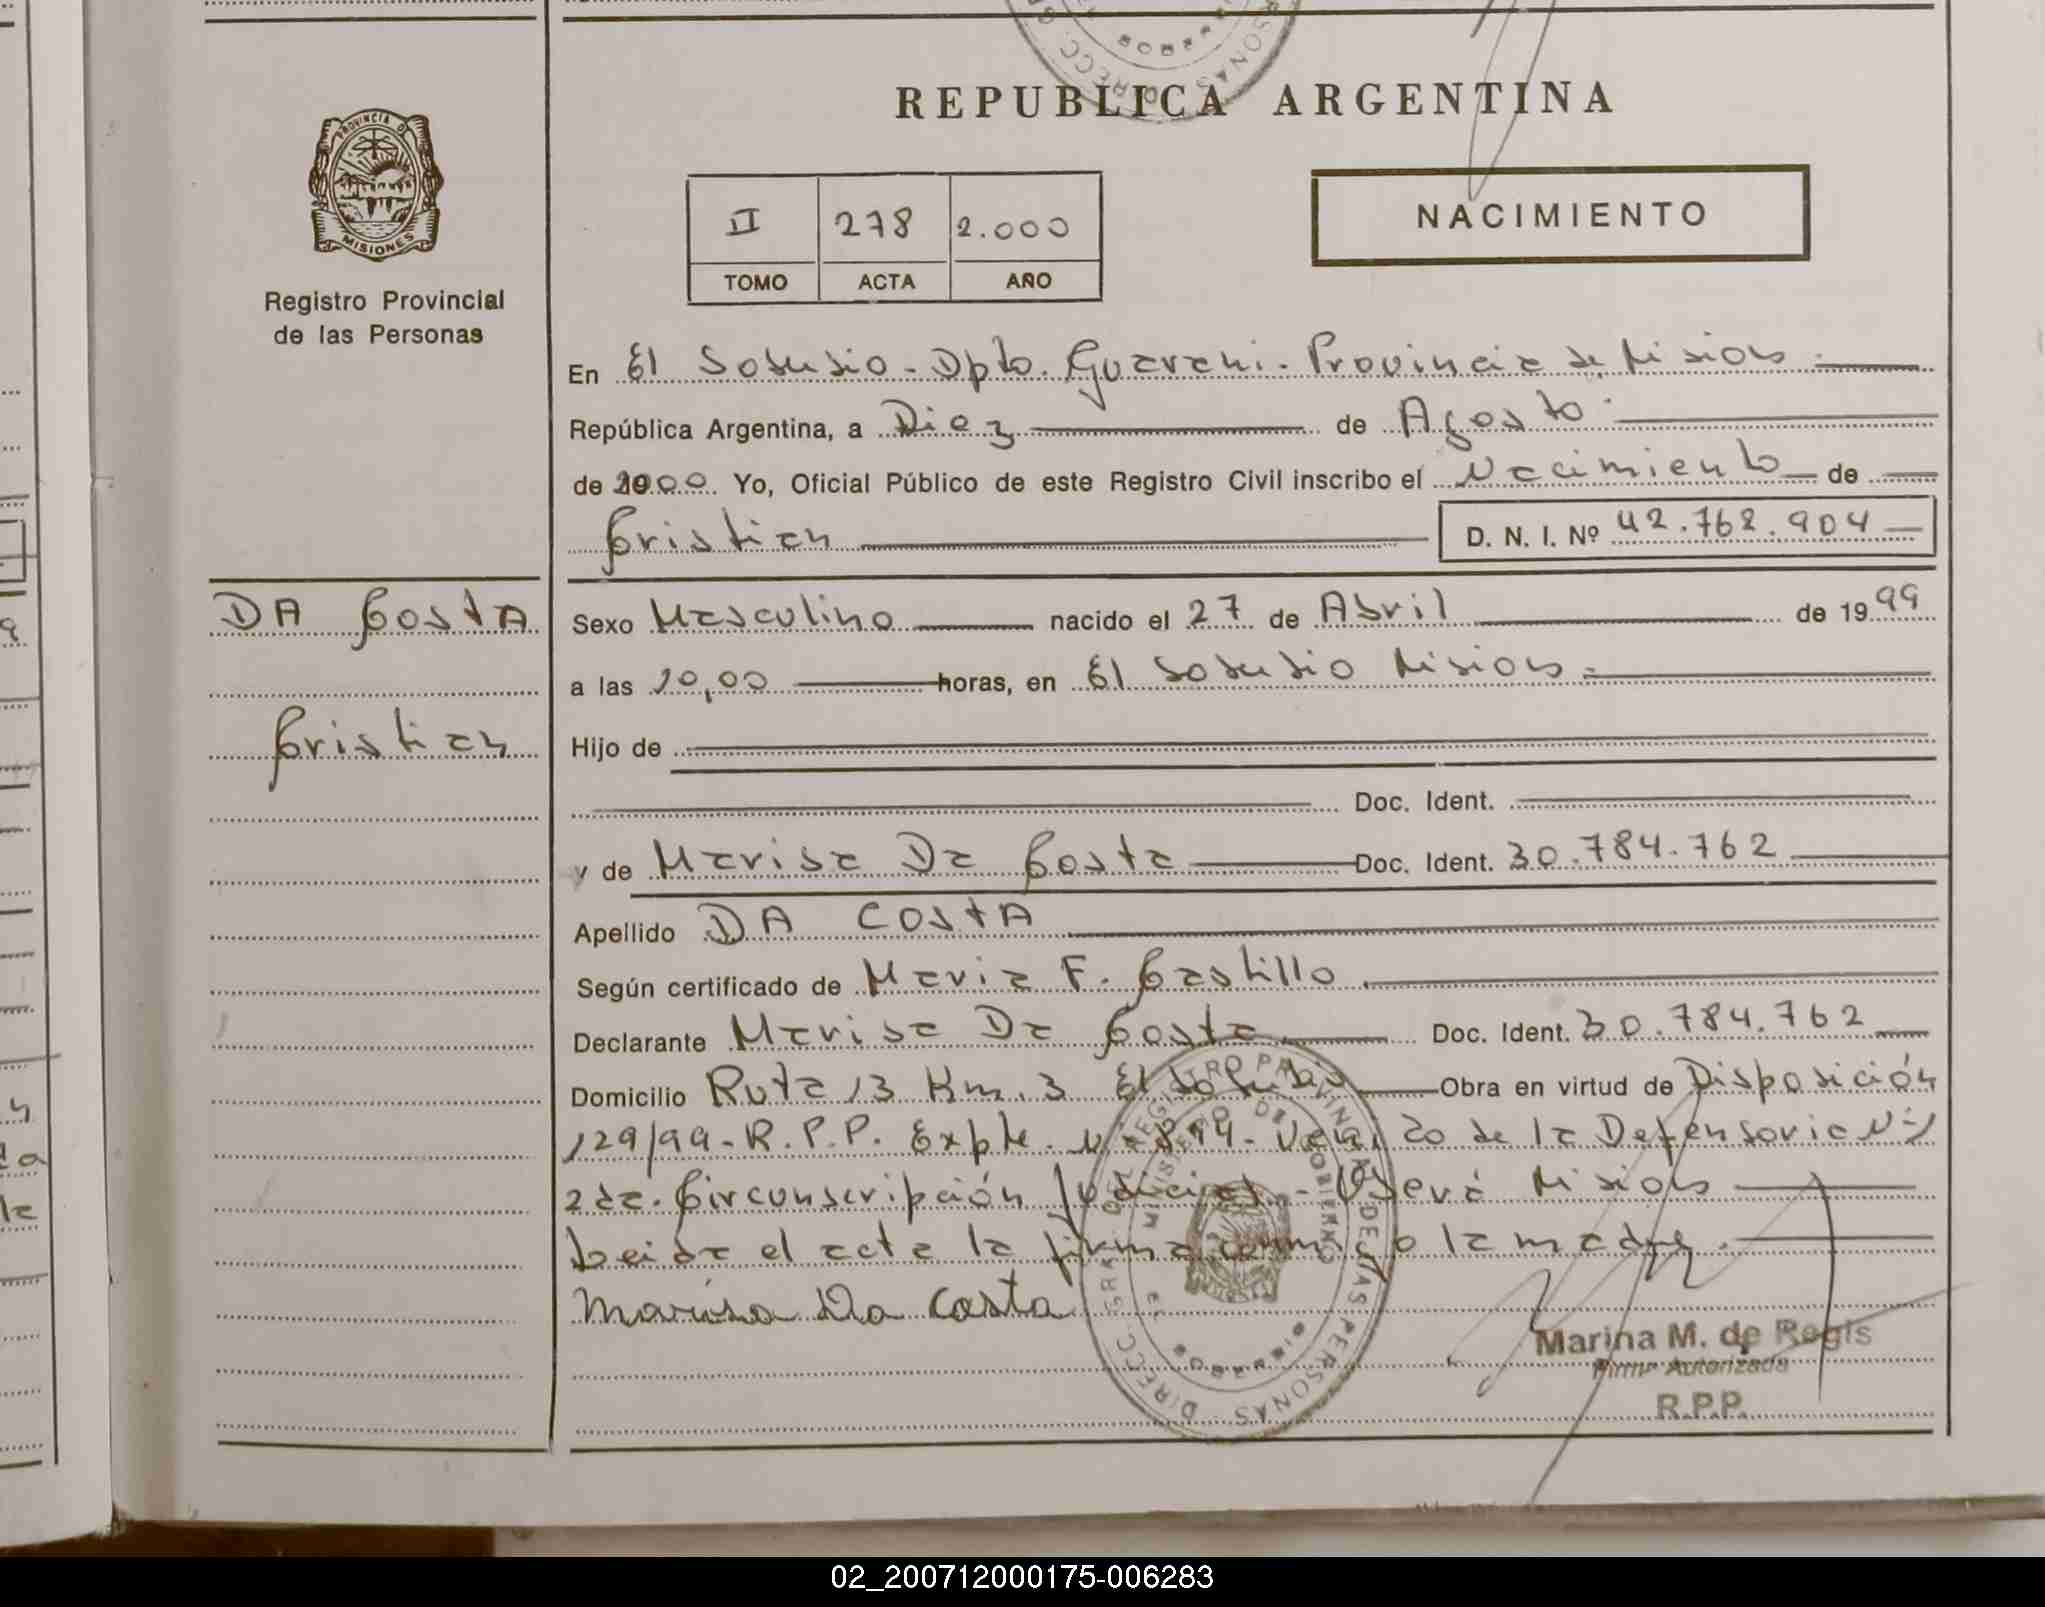 REPUBLICA ARGENTINA
PROVINCIA DE
MISIONES
Registro Provincial
de las Personas
II 278 2.000
TOMO ACTA AÑO
NACIMIENTO
En El Soberbio - Dpto. Guarani - Provincia de Misiones
República Argentina, a Diez de Agosto
de 2000 Yo, Oficial Público de este Registro Civil inscribo el Nacimiento de
Cristian D. N. I. Nº 42.762.904
DA Costa
Cristian
Sexo Masculino nacido el 27 de Abril de 1999
a las 20,00 horas, en El Soberbio Misiones
Hijo de
Doc. Ident.
y de Marisa Da Costa Doc. Ident. 30.784.762
Apellido DA COSTA
Según certificado de Maria F. Castillo
Declarante Marisa Da Costa Doc. Ident. 30.784.762
Domicilio Ruta 13 Km. 3 El Soberbio Obra en virtud de Disposición
129/99 - R.P.P. Expte. de la Defensoria
2da. Circunscripción Judicial - Oberá Misiones
Leida el acta la firma conmigo la madre.
Marisa Da Costa
DIRECC. GRAL. DEL REGISTRO PROVINCIAL DE LAS PERSONAS
MINISTERIO DE GOBIERNO
Marina M. de Regis
Firma Autorizada
R.P.P.
02_200712000175-006283